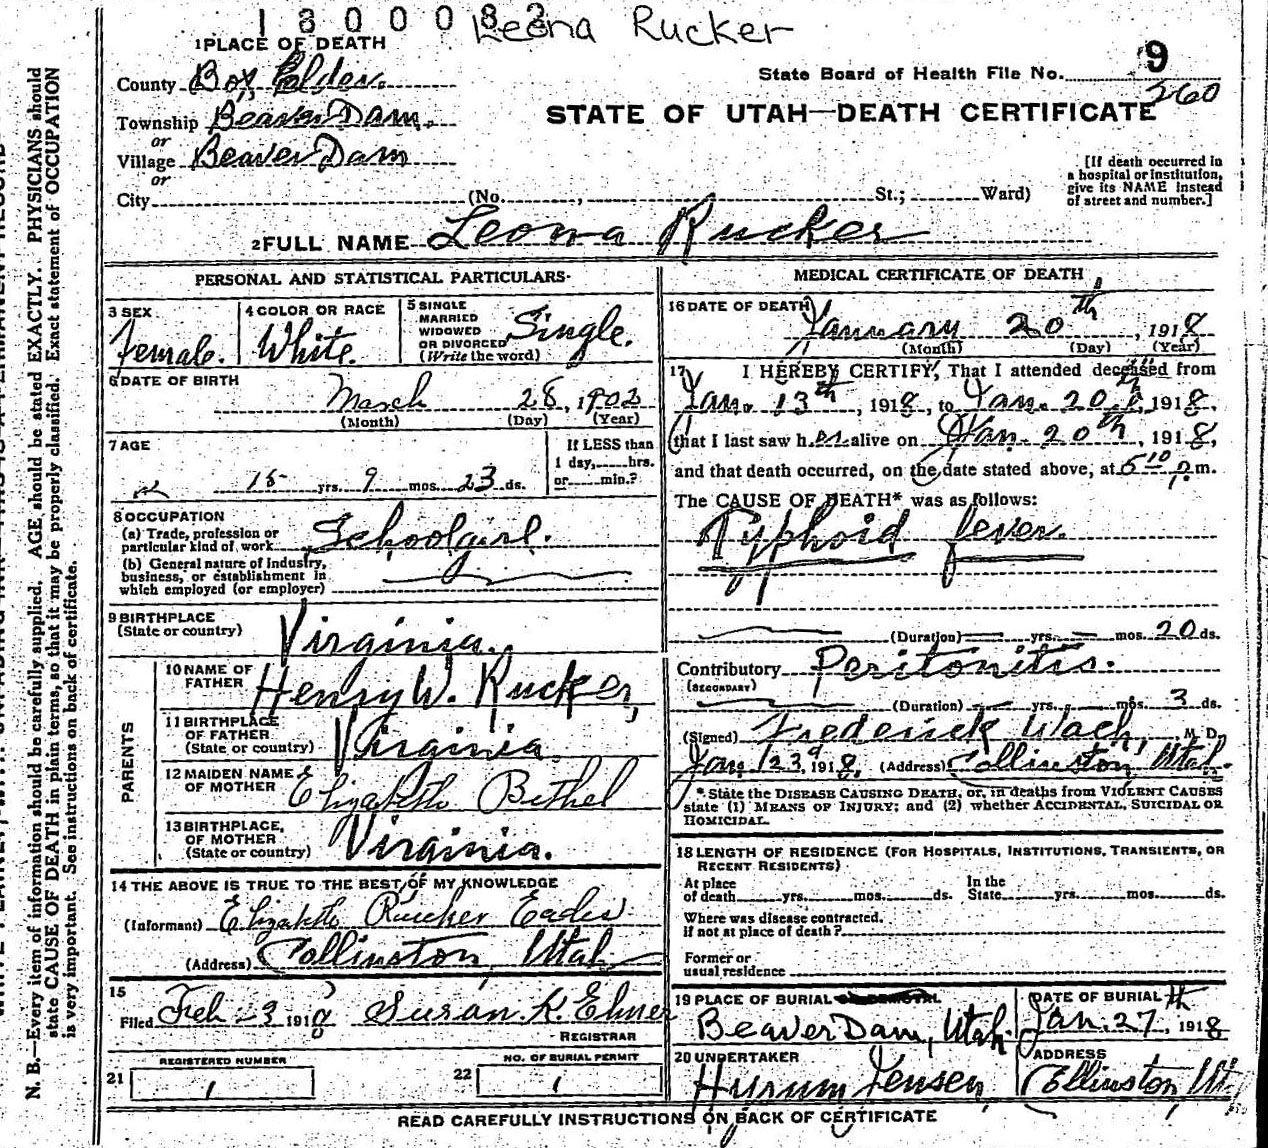 1800082 Leona Rucker
1 PLACE OF DEATH
County Box Elder.
State Board of Health File No. 9
260
Township Beaver Dam.
STATE OF UTAH—DEATH CERTIFICATE
or
Village Beaver Dam
or
City (No. , St.; Ward)
[If death occurred in
a hospital or institution,
give its NAME instead
of street and number.]
2 FULL NAME Leona Rucker
PERSONAL AND STATISTICAL PARTICULARS
3 SEX
female.
4 COLOR OR RACE
White.
5 SINGLE
MARRIED
WIDOWED
OR DIVORCED
(Write the word)
Single.
6 DATE OF BIRTH
March 28, 1902
(Month) (Day) (Year)
7 AGE
15 yrs. 9 mos. 23 ds.
If LESS than
1 day, hrs.
or min.?
8 OCCUPATION
(a) Trade, profession or
particular kind of work Schoolgirl.
(b) General nature of Industry,
business, or establishment in
which employed (or employer)
9 BIRTHPLACE
(State or country) Virginia.
PARENTS
10 NAME OF
FATHER Henry W. Rucker,
11 BIRTHPLACE
OF FATHER
(State or country) Virginia
12 MAIDEN NAME
OF MOTHER Elizabeth Bethel
13 BIRTHPLACE,
OF MOTHER
(State or country) Virginia.
14 THE ABOVE IS TRUE TO THE BEST OF MY KNOWLEDGE
(Informant) Elizabeth Rucker Eades
(Address) Collinston, Utah
15
Filed Feb 3 1918 Susan K.
REGISTRAR
REGISTERED NUMBER
21 1
NO. OF BURIAL PERMIT
22 1
MEDICAL CERTIFICATE OF DEATH
16 DATE OF DEATH
January 20th, 1918
(Month) (Day) (Year)
17 I HEREBY CERTIFY, That I attended deceased from
Jan. 13th, 1918, to Jan. 20th, 1918,
that I last saw her alive on Jan. 20th, 1918,
and that death occurred, on the date stated above, at 5 10 p.m.
The CAUSE OF DEATH* was as follows:
Typhoid fever.
(Duration) yrs. mos. 20 ds.
Contributory Peritonitis.
(SECONDARY)
(Duration) yrs. mos. 3 ds.
(Signed) Frederick Wach, M. D.
Jan 23, 1918, (Address) Collinston, Utah.
*State the DISEASE CAUSING DEATH, or, in deaths from VIOLENT CAUSES
state (1) MEANS OF INJURY; and (2) whether ACCIDENTAL, SUICIDAL OR
HOMICIDAL.
18 LENGTH OF RESIDENCE (FOR HOSPITALS, INSTITUTIONS, TRANSIENTS, OR
RECENT RESIDENTS)
At place
of death yrs. mos. ds.
In the
State yrs. mos. ds.
Where was disease contracted.
if not at place of death?
Former or
usual residence
19 PLACE OF BURIAL OR REMOVAL
Beaver Dam, Utah.
DATE OF BURIAL
Jan. 27th, 1918
20 UNDERTAKER
Hyrum Jensen,
ADDRESS
Collinston, Ut.
READ CAREFULLY INSTRUCTIONS ON BACK OF CERTIFICATE
N. B.—Every item of information should be carefully supplied. AGE should be stated EXACTLY. PHYSICIANS should
state CAUSE OF DEATH in plain terms, so that it may be properly classified. Exact statement of OCCUPATION
is very important. See instructions on back of certificate.